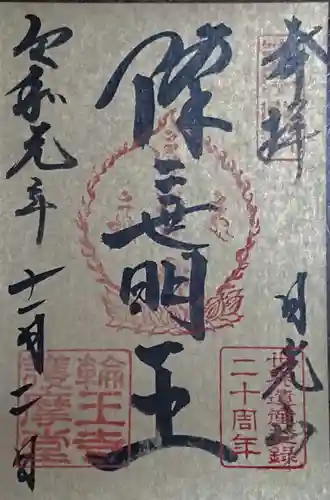 奉拝
日光山
降三世明王
令和元年
十一月二日
世界遺産登録
二十周年
輪王寺
護摩堂